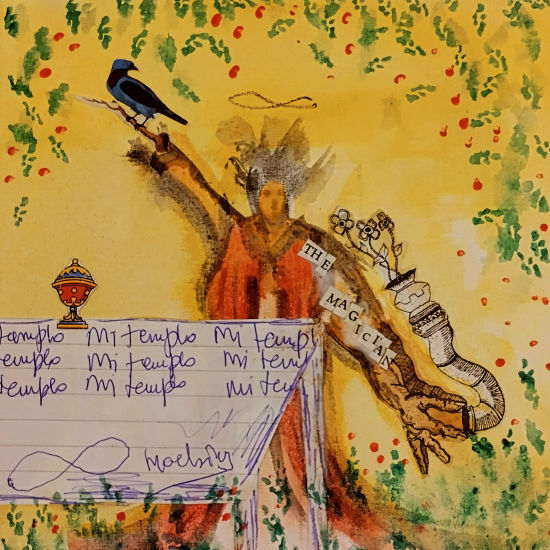 THE
MAGICIAN
templo Mi templo Mi templ
templo Mi templo Mi tem
templo Mi templo mi tem